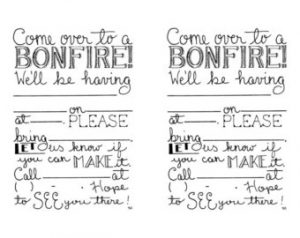 Come over to a
BONFIRE!
We'll be having
on
at . PLEASE
bring
LET us know if
you can MAKE it.
Call at
( ) - . Hope
to SEE you there!
Come over to a
BONFIRE!
We'll be having
on
at . PLEASE
bring
LET us know if
you can MAKE it.
Call at
( ) - . Hope
to SEE you there!